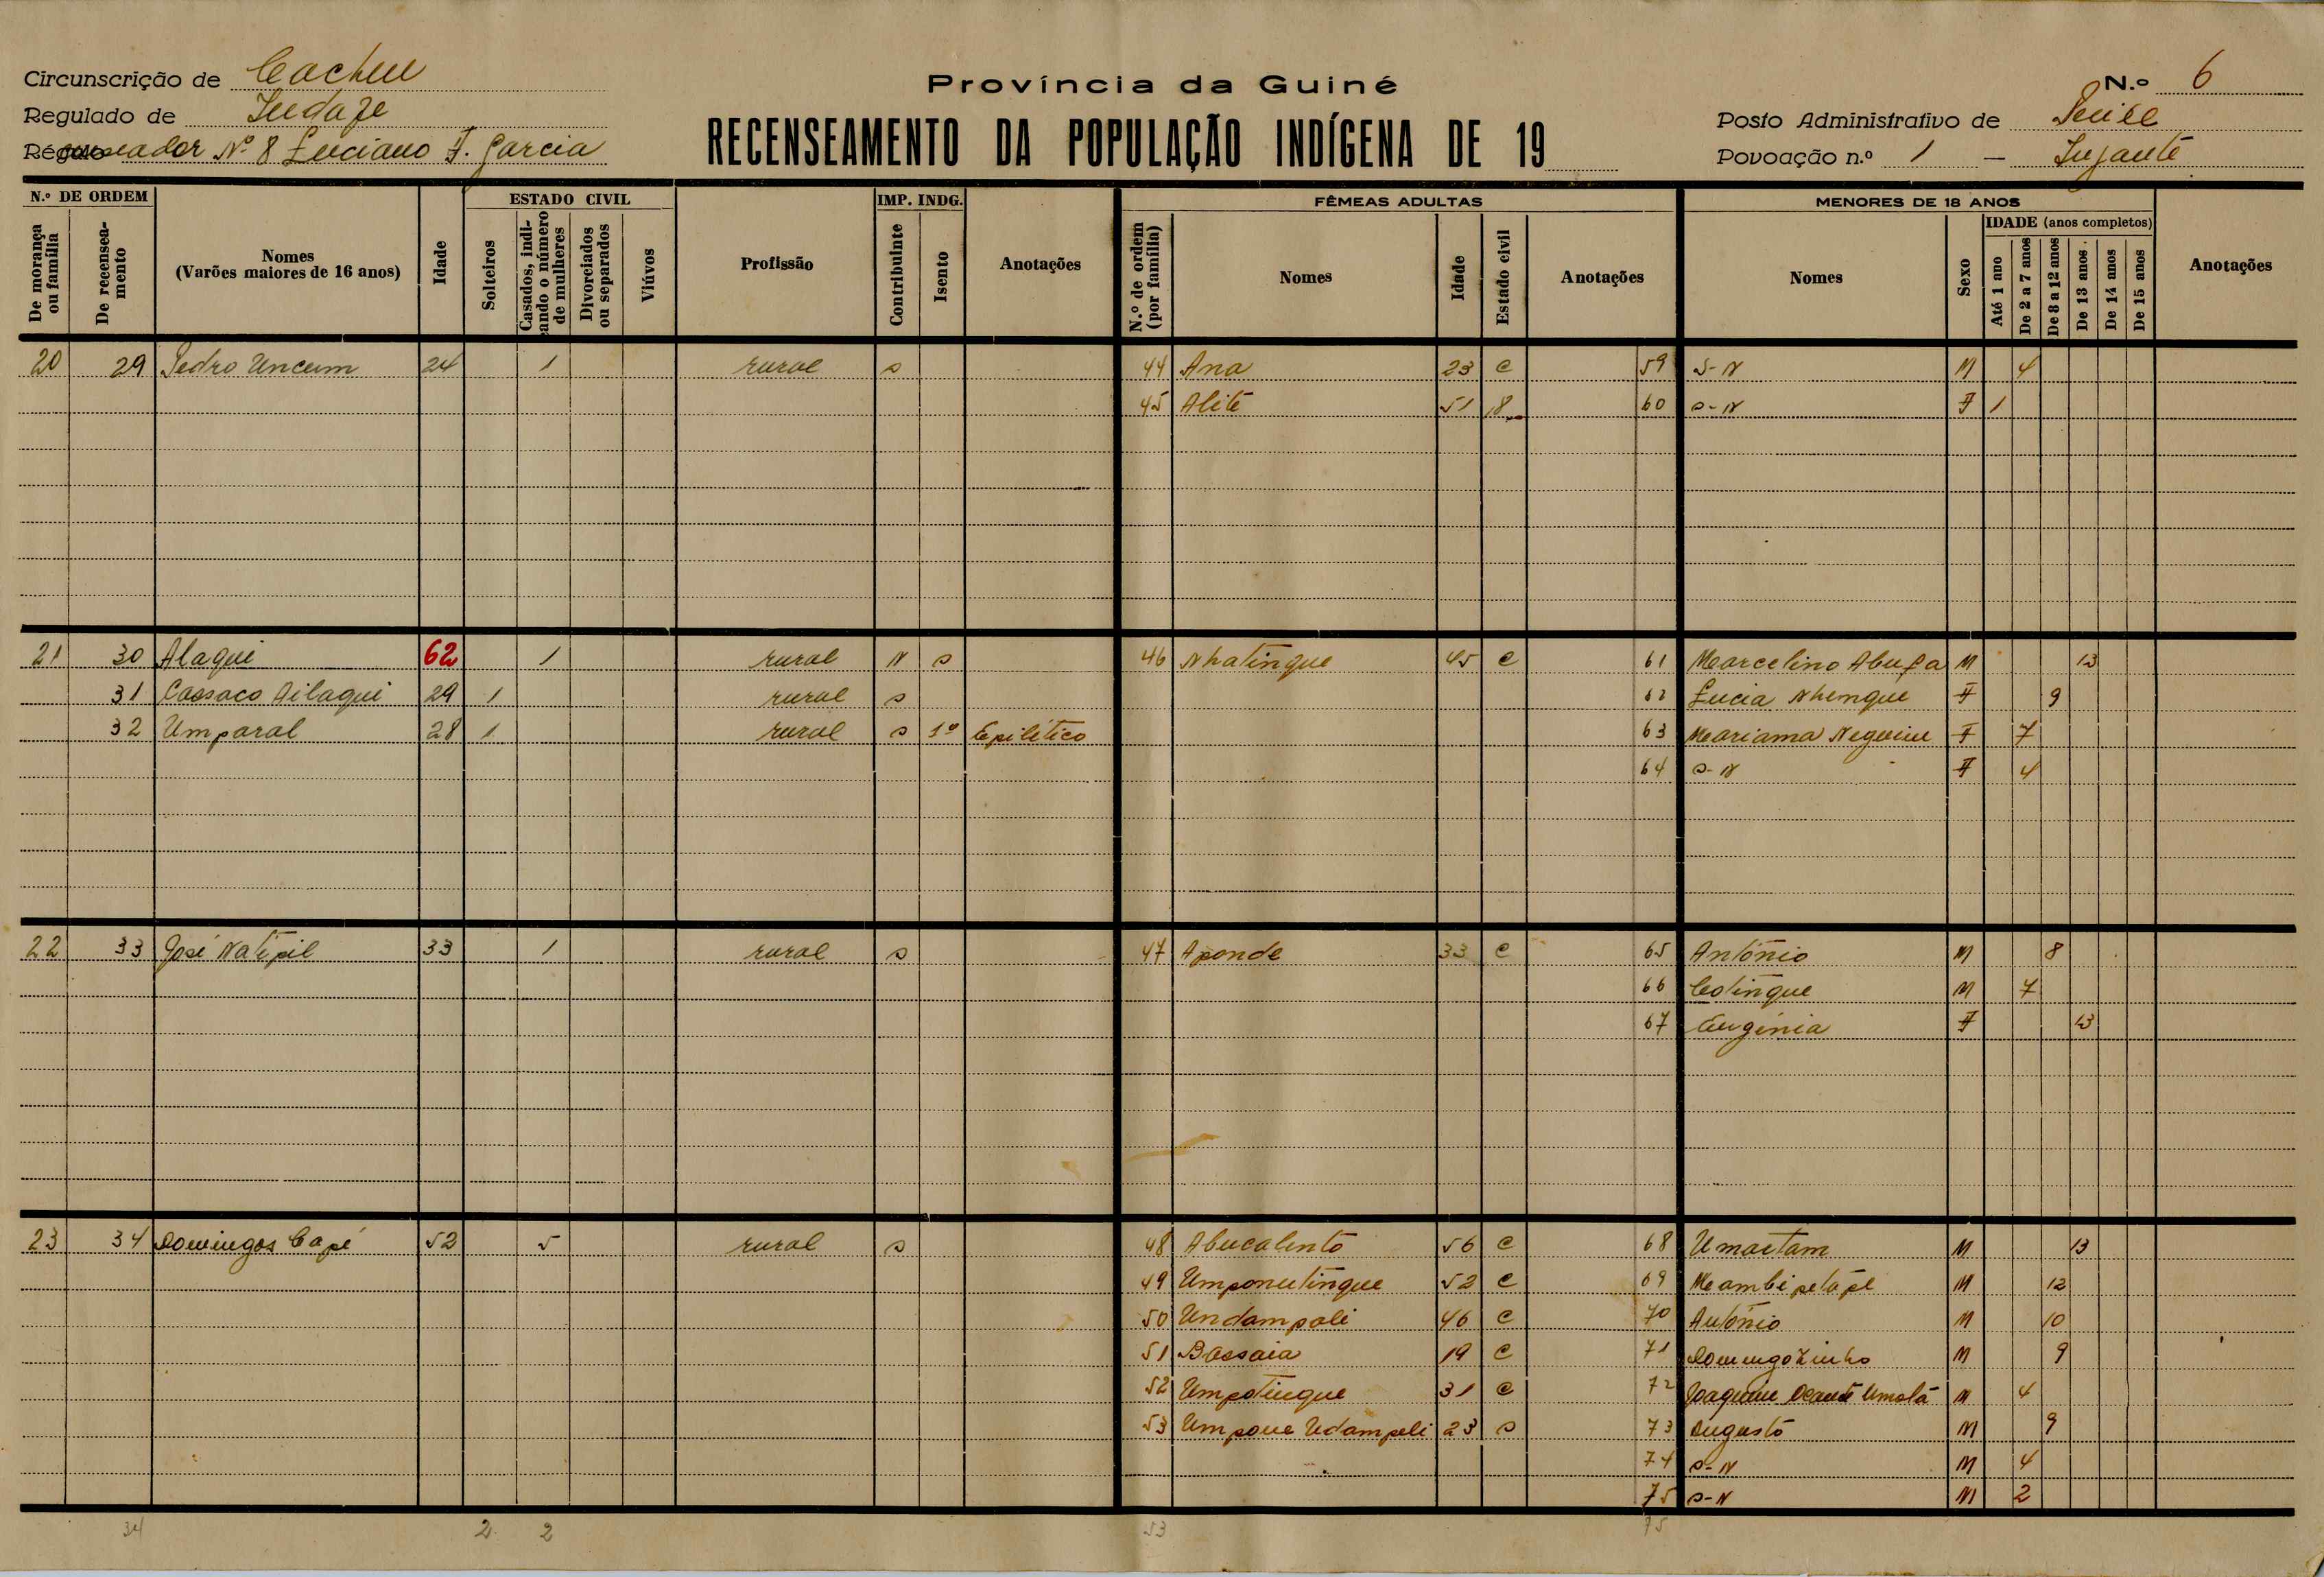 Circunscrição de Cacheu
Província da Guiné
N.º 6
Regulado de
Posto Administrativo de
RECENSEAMENTO DA POPULAÇÃO INDÍGENA DE 19
Nº 8 Luciano F. Garcia
Povoação n.º 1 —
N.º DE ORDEM
De morança ou família
De recenseamento
Nomes
(Varões maiores de 16 anos)
Idade
ESTADO CIVIL
Solteiros
Casados, indicando o número de mulheres
Divorciados ou separados
Viúvos
Profissão
IMP. INDG.
Contribuinte
Isento
Anotações
FÊMEAS ADULTAS
N.º de ordem (por família)
Nomes
Idade
Estado civil
Anotações
MENORES DE 18 ANOS
Nomes
Sexo
IDADE (anos completos)
Até 1 ano
De 2 a 7 anos
De 8 a 12 anos
De 13 anos
De 14 anos
De 15 anos
Anotações
20 29 Pedro Uncum 24 1 rural s 44 Ana 23 c 59 S-N M 4
45 Alité 51 60 s-N F 1
21 30 Alaqui 62 1 rural N s 46 Nhatingue 45 c 61 Marcelino M 13
31 Cassaco Ailaqui 29 1 rural s 62 Lucia Nhengue F 9
32 Umparal 28 1 rural s 1º Epilético 63 Mariama F 7
64 s-N F 4
22 33 José Natipil 33 1 rural s 47 Aponde 33 c 65 António M 8
66 Cotingue M 7
67 Eugénia F 13
23 34 Domingos Capé 52 5 rural s 48 Abucalento 56 c 68 Umactam M 13
49 Umponutingue 52 c 69 M 12
50 Undampoli 46 c 70 António M 10
51 Bassaia 19 c 71 Domingozinho M 9
52 Umpotingue 31 c 72 Joaquim M 4
53 Umpoue Udampeli 23 s 73 Augusto M 9
74 s-N M 4
75 s-N M 2
34 2 2 53 75